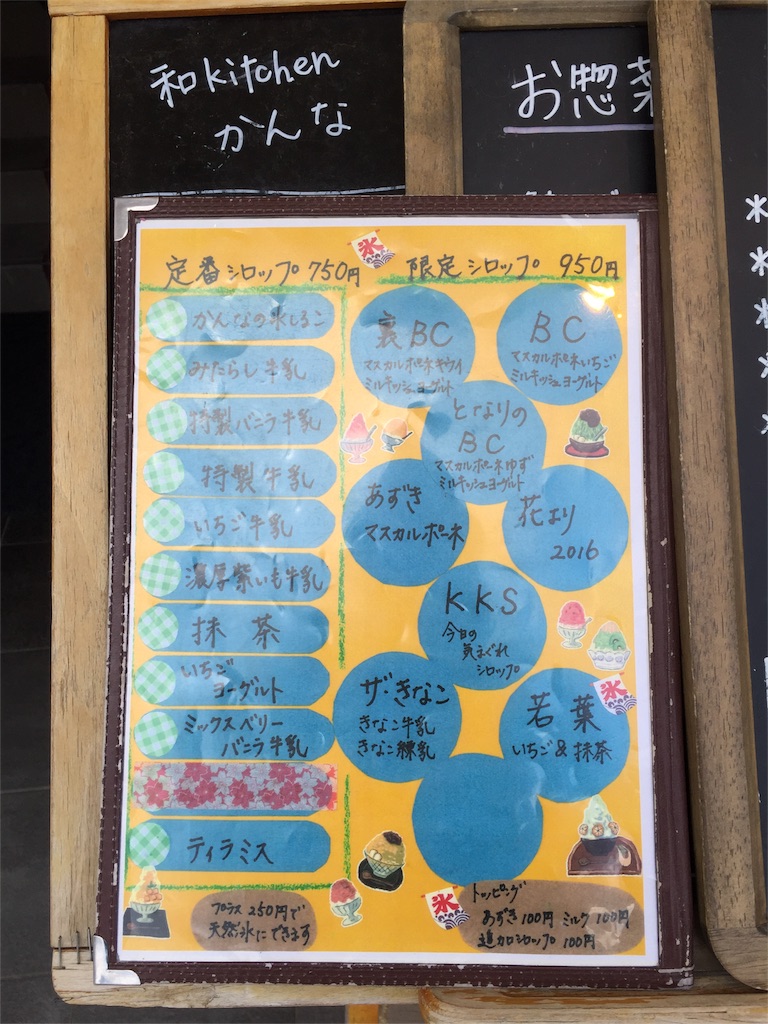 和kitchen
かんな
お惣菜
定番シロップ 750円
かんなの氷しるこ
みたらし牛乳
特製バニラ牛乳
特製牛乳
いちご牛乳
濃厚紫いも牛乳
抹茶
いちご
ヨーグルト
ミックスベリー
バニラ牛乳
ティラミス
プラス250円で
天然氷にできます
氷
限定シロップ 950円
裏BC
マスカルポーネキウイ
ミルキッシュヨーグルト
BC
マスカルポーネいちご
ミルキッシュヨーグルト
となりの
BC
マスカルポーネゆず
ミルキッシュヨーグルト
あずき
マスカルポーネ
花より
2016
KKS
今日の
気まぐれ
シロップ
ザ・きなこ
きなこ牛乳
きなこ練乳
氷
若葉
いちご&抹茶
氷
トッピング
あずき100円 ミルク100円
追加シロップ 100円